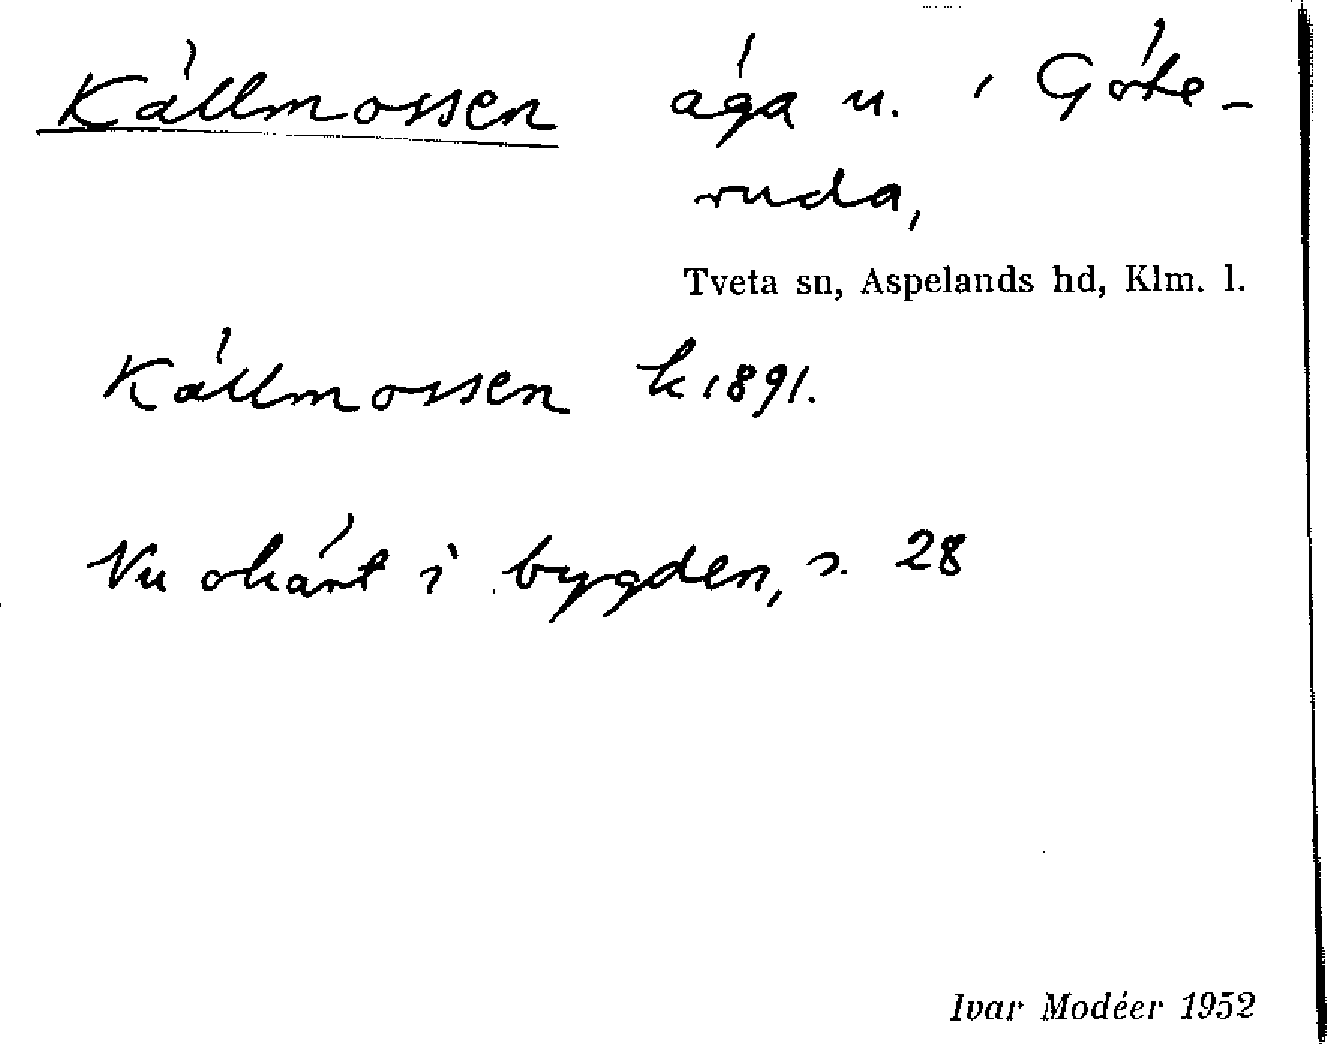 Källmossen äga u. i Göte-
ruda,
Tveta sn, Aspelands hd, Klm. l.
Källmossen k 1891.
Nu okänt i bygden, s. 28
Ivar Modéer 1952